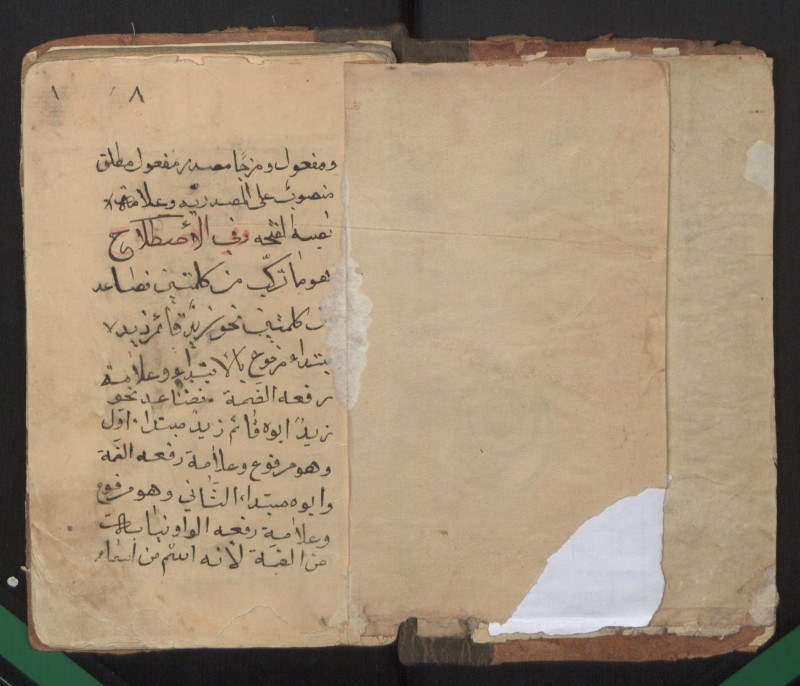 ٨ ١
ومفعول ومزجا مصدر مفعول مطلق
منصوب على المصدرية وعلامة
نصبه الفتحه وفي الأصطلاح
هو ما تركب من كلمتين فصاعد
من كلمتين نحو زيد قائم زيد
مبتداء مرفوع بالابتداء وعلامة
رفعه الضمة فصاعد نحو
زيد ابوه قائم زيد مبتداء اول
وهو مرفوع وعلامة رفعه الضمة
وابوه مبتداء الثاني وهو مرفوع
وعلامة رفعه الواو نيابة
من الضمة لانه اسم من اسماء